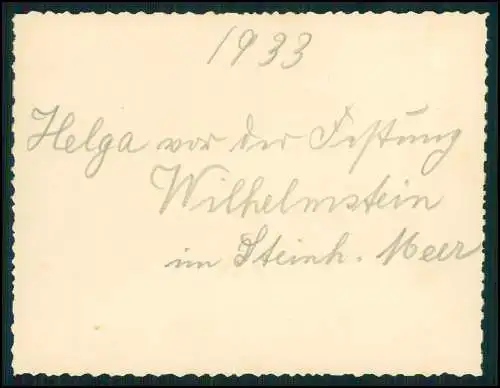 1933
Helga vor der Festung
Wilhelmstein
im Steinh. Meer